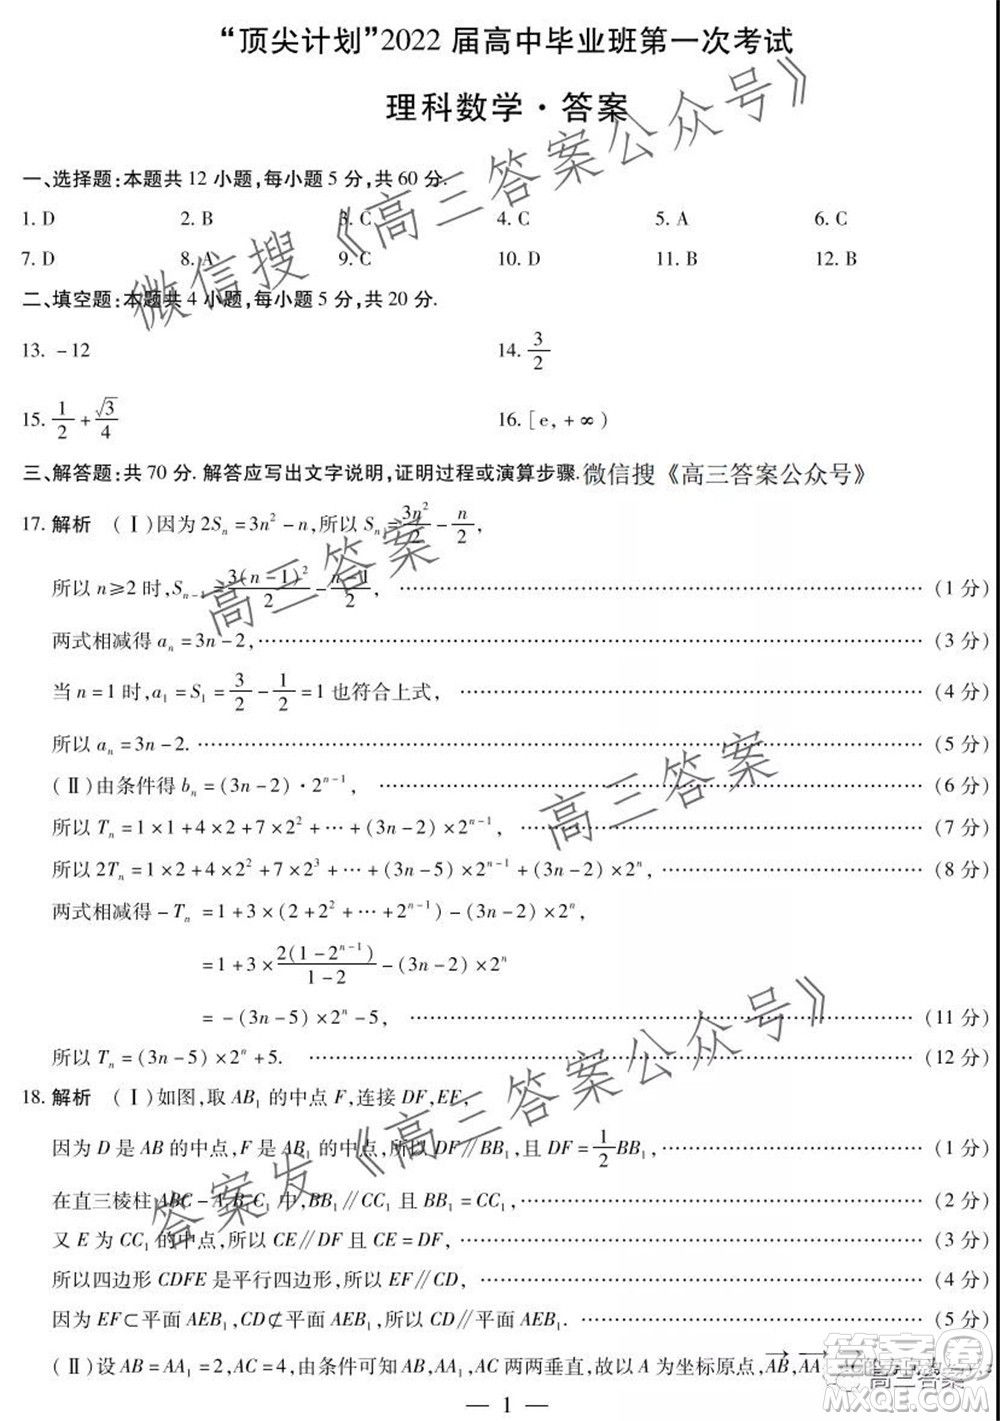 “顶尖计划”2022 届高中毕业班第一次考试
理科数学·答案
一、选择题:本题共 12 小题,每小题 5 分,共 60 分.
1. D 2. B 3. C 4. C 5. A 6. C
7. D 8. A 9. C 10. D 11. B 12. B
二、填空题:本题共 4 小题,每小题 5 分,共 20 分.
13. -12 14. 3/2
15. 1/2 + √3/4 16. [e, +∞)
三、解答题:共 70 分. 解答应写出文字说明,证明过程或演算步骤. 微信搜《高三答案公众号》
17. 解析 (Ⅰ)因为 2Sₙ = 3n² - n,所以 Sₙ = 3n²/2 - n/2,
所以 n≥2 时,Sₙ₋₁ = 3(n-1)²/2 - (n-1)/2, …… (1 分)
两式相减得 aₙ = 3n-2, …… (3 分)
当 n=1 时,a₁ = S₁ = 3/2 - 1/2 = 1 也符合上式, …… (4 分)
所以 aₙ = 3n-2. …… (5 分)
(Ⅱ)由条件得 bₙ = (3n-2)·2ⁿ⁻¹, …… (6 分)
所以 Tₙ = 1×1+4×2+7×2²+…+(3n-2)×2ⁿ⁻¹, …… (7 分)
所以 2Tₙ = 1×2+4×2²+7×2³+…+(3n-5)×2ⁿ⁻¹+(3n-2)×2ⁿ, …… (8 分)
两式相减得 -Tₙ = 1+3×(2+2²+…+2ⁿ⁻¹)-(3n-2)×2ⁿ,
= 1+3×2(1-2ⁿ⁻¹)/(1-2) -(3n-2)×2ⁿ
= -(3n-5)×2ⁿ-5, …… (11 分)
所以 Tₙ = (3n-5)×2ⁿ+5. …… (12 分)
18. 解析 (Ⅰ)如图,取 AB₁ 的中点 F,连接 DF,EE,
因为 D 是 AB 的中点,F 是 AB₁ 的中点,所以 DF∥BB₁,且 DF = 1/2 BB₁, …… (1 分)
在直三棱柱 ABC-A₁B₁C₁ 中,BB₁∥CC₁ 且 BB₁ = CC₁, …… (2 分)
又 E 为 CC₁ 的中点,所以 CE∥DF 且 CE = DF, …… (3 分)
所以四边形 CDFE 是平行四边形,所以 EF∥CD, …… (4 分)
因为 EF⊂平面 AEB₁,CD⊄平面 AEB₁,所以 CD∥平面 AEB₁. …… (5 分)
(Ⅱ)设 AB = AA₁ = 2,AC = 4,由条件可知 AB,AA₁,AC 两两垂直,故以 A 为坐标原点,AB,AA₁
— 1 —
微信搜《高三答案公众号》
高三答案
高三答案
答案发《高三答案公众号》
高三答案
答案圈